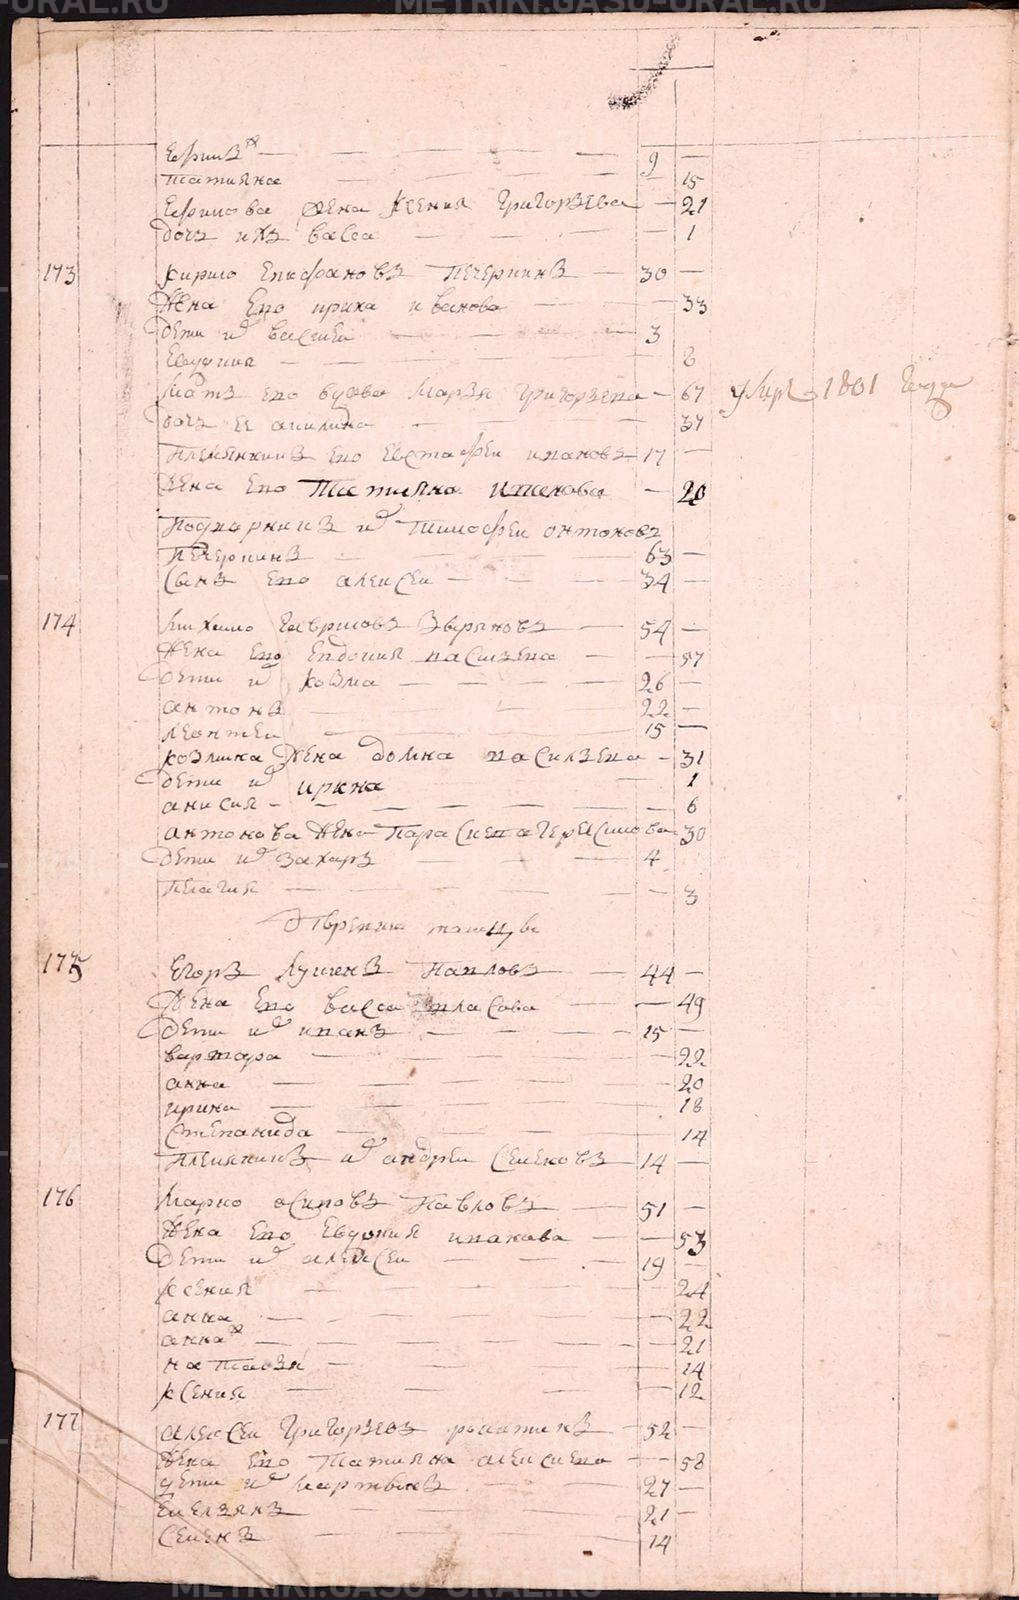 Ефимъ — 9 —
татияна — 15
Ефимова жена Ксения Григорьева — 21
дочь ихъ васса — 1
173 кирило Епифановъ Печеркинъ — 30 —
Жена Ево ирина иванова — 33
Дети их василеи — 3
Евдокия — 8
Мать Ево вдова Марья Григорьева — 67 умре 1801 Году
дочь Ее акилина — 37
Племянникъ Ево Евстафеи ивановъ — 17 —
Жена Ево Татияна — 20
их тимофеи антоновъ
Печеркинъ — 63 —
Сынъ Ево алексеи — 34 —
174 Михаило Гавриловъ Зыряновъ — 54 —
Жена Ево Евдокия васильева — 57
Дети их козма — 26 —
антонъ — 22 —
леонтеи — 15 —
козмина Жена домна васильева — 31
Дети их ирина — 1
анисия — 6
антонова Жена Парасковя Герасимова 30
Дети их захаръ — 4
пелагия — 3
175 Егоръ Павловъ — 44 —
Жена Ево васса власова — 49
Дети их иванъ — 15 —
варвара — 22
анна — 20
ирина — 18
Степанида — 14
Племянникъ их андреи Семеновъ — 14 —
176 Марко осиповъ Павловъ — 51 —
Жена Ево Евдокия иванова — 53
Дети их алексеи — 19 —
ксения — 24
анна — 22
анна — 21
наталья — 14
ксения — 12
177 алексеи Григорьевъ — 52 —
Жена Ево Татияна алексиева — 58
Дети их мартынъ — 27 —
Емельянъ — 21 —
Семенъ — 14
METRIKI.GASO-URAL.RU